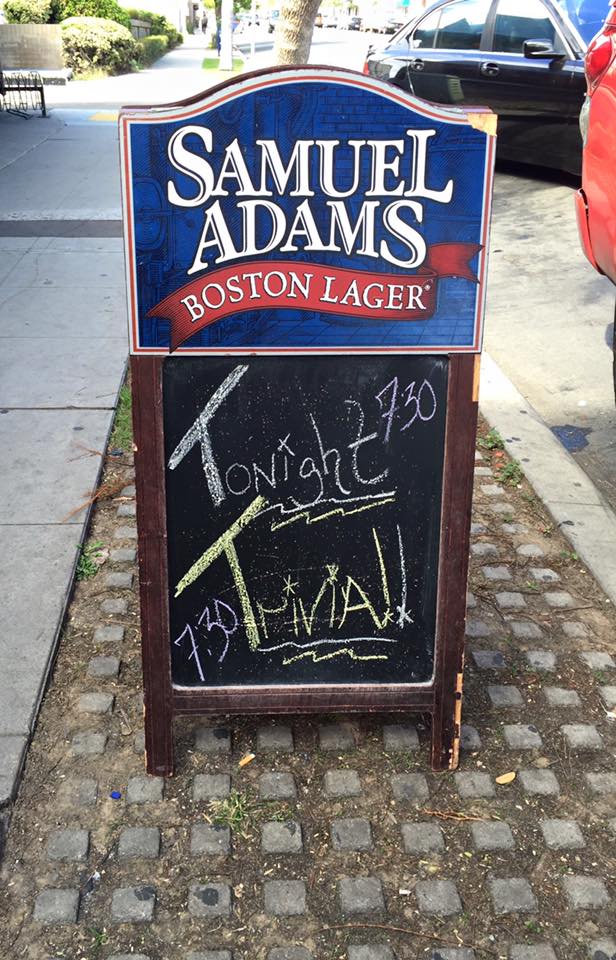 SAMUEL
ADAMS
BOSTON LAGER®
7:30
Tonight
TriviA!!
7:30